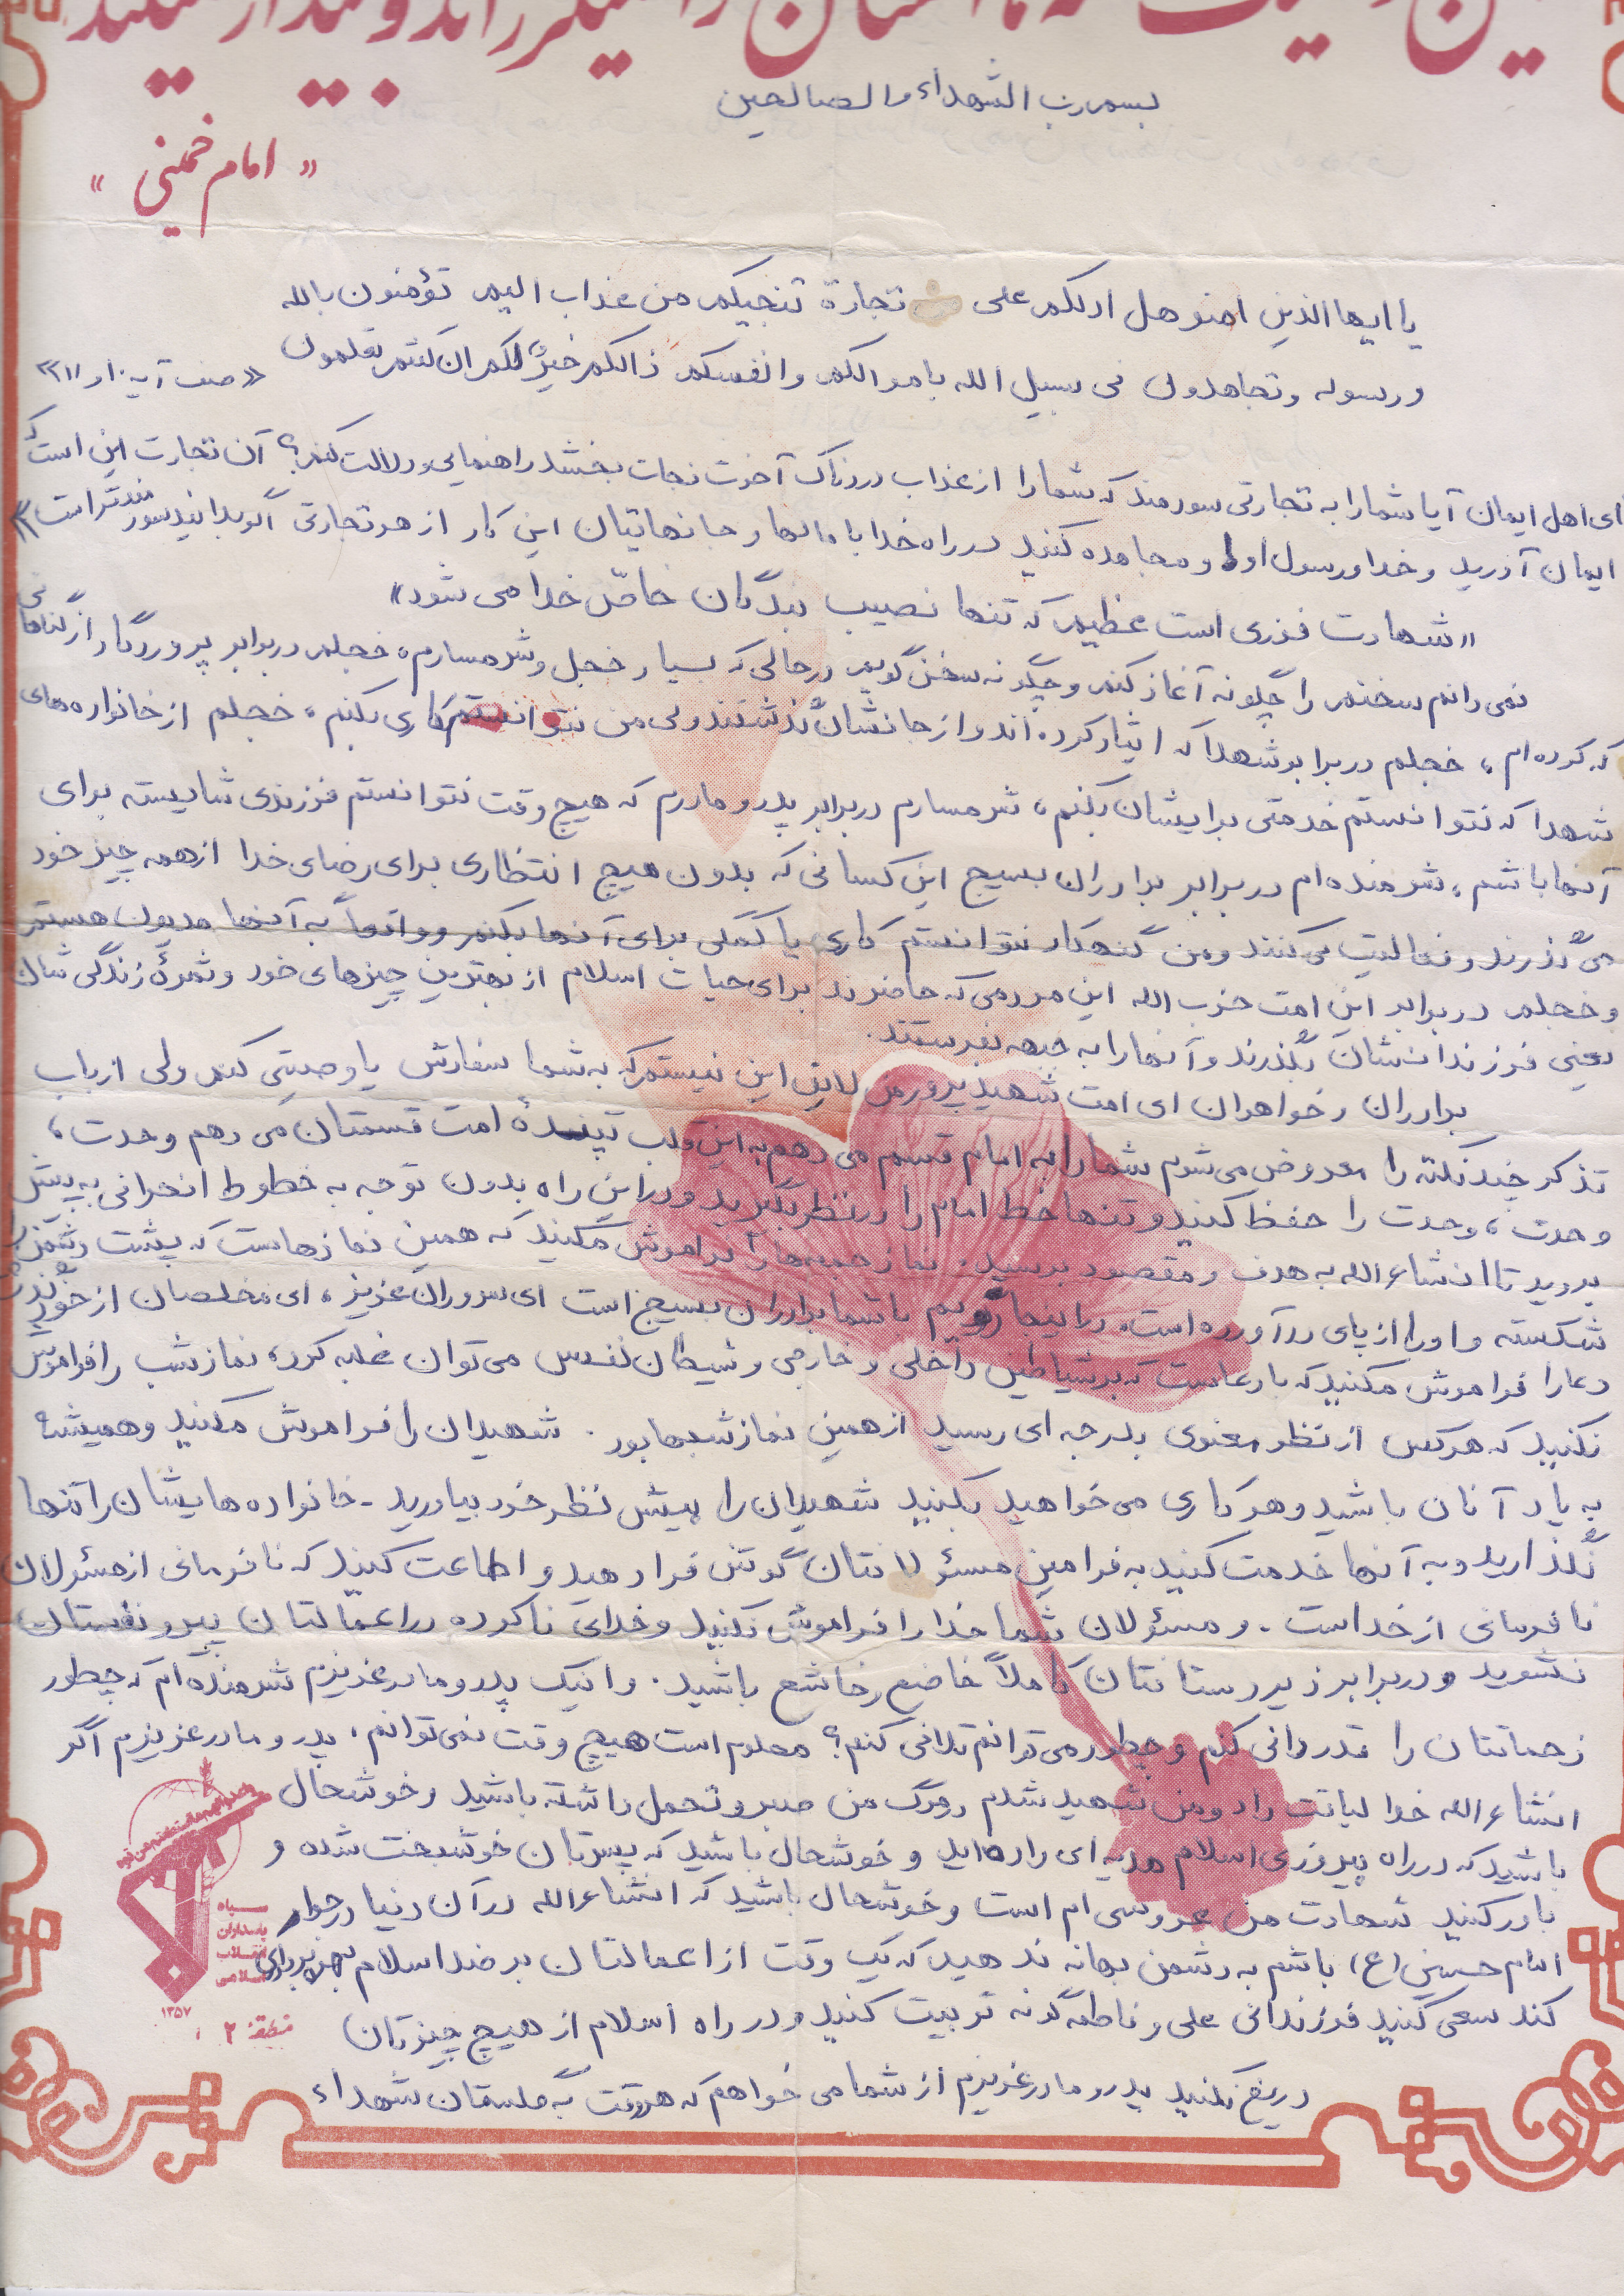 انسان را می‌لرزاند و بیدار میکند
« امام خمینی »
بسم رب الشهداء والصالحین
یا ایها الذین امنو هل ادلکم علی تجارة تنجیکم من عذاب الیم تؤمنون بالله
و رسوله و تجاهدون فی سبیل الله باموالکم وانفسکم ذالکم خیرٌ لکم ان کنتم تعلمون « صف آیه ۱۰ و ۱۱ »
ای اهل ایمان آیا شما را به تجارتی سودمند که شما را از عذاب دردناک آخرت نجات بخشد راهنمایی و دلالت کنم؟ آن تجارت این است که
ایمان آورید و خدا و رسول او را و مجاهده کنید در راه خدا با مالها و جانهایتان این کار از هر تجارتی اگر بدانید سودمندتر است »
« شهادت فوزی است عظیم که تنها نصیب بندگان خاصّ خدا می شود »
نمی دانم سخنم را چگونه آغاز کنم و چگونه سخن گویم در حالی که بسیار خجل و شرمسارم، خجلم در برابر پروردگار از گناهانی
که کرده ام، خجلم در برابر شهدا که ایثار کرده اند و از جانشان گذشتند ولی من نتوانستم کاری بکنم، خجلم از خانواده های
شهدا که نتوانستم خدمتی برایشان بکنم، شرمسارم در برابر پدر و مادرم که هیچ وقت نتوانستم فرزندی شایسته برای
آنها باشم، شرمنده ام در برابر برادران بسیج این کسانی که بدون هیچ انتظاری برای رضای خدا از همه چیز خود
می گذرند و فعالیت می کنند و من گنهکار نتوانستم کاری یا کمکی برای آنها بکنم و واقعاً به آنها مدیون هستم
و خجلم در برابر این امت حزب الله این مردمی که حاضرند برای حیات اسلام از بهترین چیزهای خود و ثمرهٔ زندگی شان
یعنی فرزندانشان بگذرند و آنها را به جبهه بفرستند.
برادران و خواهران ای امت شهید پرور من لایق این نیستم که به شما سفارش یا وصیتی کنم ولی از باب
تذکر چند نکته را معروض می شوم شما را به امام قسم می دهم به این قلب تپندهٔ امت قسمتان می دهم وحدت،
وحدت، وحدت را حفظ کنید و تنها خط امام را در نظر بگیرید و در این راه بدون توجه به خطوط انحرافی به پیش
بروید تا انشاءالله به هدف و مقصود برسید. نماز جمعه ها را فراموش مکنید که همین نمازهاست که پشت دشمن را
شکسته و او را از پای درآورده است. در اینجا رویم با شما برادران بسیج است ای سروران عزیز، ای مخلصان از خود گذشته
دعا را فراموش مکنید که با دعاست که بر شیاطین داخلی و خارجی و شیطان نفس می توان غلبه کرد، نماز شب را فراموش
نکنید که هر کس از نظر معنوی بدرجه ای رسید از همین نماز شبها بود. شهیدان را فراموش مکنید و همیشه
به یاد آنان باشید و هر کاری می خواهید بکنید شهیدان را پیش نظر خود بیاورید ـ خانواده هایشان را تنها
نگذارید و به آنها خدمت کنید به فرامین مسئولانتان گوش فرا دهید و اطاعت کنید که نافرمانی از مسئولان
نافرمانی از خداست. و مسئولان شما خدا را فراموش نکنید و خدای ناکرده در اعمالتان پیرو نفستان
نشوید و در برابر زیردستانتان کاملاً خاضع و خاشع باشید. و اینک پدر و مادر عزیزم شرمنده ام که چطور
زحماتتان را قدردانی کنم و چطور می توانم تلافی کنم؟ معلوم است هیچ وقت نمی توانم، پدر و مادر عزیزم اگر
انشاءالله خدا لیاقت داد و من شهید شدم در مرگ من صبر و تحمل داشته باشید و خوشحال
باشید که در راه پیروزی اسلام هدیه ای داده اید و خوشحال باشید که پسرتان خوشبخت شده و
باور کنید شهادت من عروسی ام است و خوشحال باشید که انشاءالله در آن دنیا در جوار
امام حسین (ع) باشم به دشمن بهانه ندهید که یک وقت از اعمالتان بر ضد اسلام بهره برداری
کند سعی کنید فرزندانی علی و فاطمه گونه تربیت کنید و در راه اسلام از هیچ چیزتان
دریغ نکنید پدر و مادر عزیزم از شما می خواهم که هر وقت به گلستان شهداء
سپاه
پاسداران
انقلاب
اسلامی
۱۳۵۷
منطقه ۲